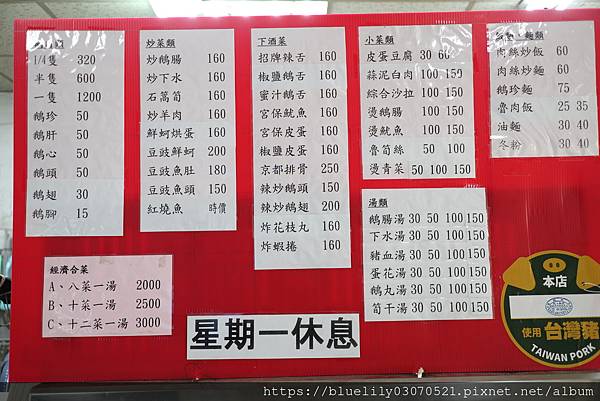 1/4隻 320
半隻 600
一隻 1200
鵝珍 50
鵝肝 50
鵝心 50
鵝頭 50
鵝翅 30
鵝腳 15
炒菜類
炒鵝腸 160
炒下水 160
石蒿筍 160
炒羊肉 160
鮮蚵烘蛋 160
豆豉鮮蚵 200
豆豉魚肚 180
豆豉魚頭 150
紅燒魚 時價
下酒菜
招牌辣舌 160
椒鹽鵝舌 160
蜜汁鵝舌 160
宮保魷魚 160
宮保皮蛋 160
椒鹽皮蛋 160
京都排骨 250
辣炒鵝頭 150
辣炒鵝翅 200
炸花枝丸 160
炸蝦捲 160
小菜類
皮蛋豆腐 30 60
蒜泥白肉 100 150
綜合沙拉 100 150
燙鵝腸 100 150
燙魷魚 100 150
魯筍絲 50 100
燙青菜 50 100 150
湯類
鵝腸湯 30 50 100 150
下水湯 30 50 100 150
豬血湯 30 50 100 150
蛋花湯 30 50 100 150
鵝丸湯 30 50 100 150
筍干湯 30 50 100 150
飯類、麵類
肉絲炒飯 60
肉絲炒麵 60
鵝珍麵 75
魯肉飯 25 35
油麵 30 40
冬粉 30 40
經濟合菜
A、八菜一湯 2000
B、十菜一湯 2500
C、十二菜一湯 3000
星期一休息
本店
使用 台灣豬
TAIWAN PORK
https://bluelily03070521.pixnet.net/album